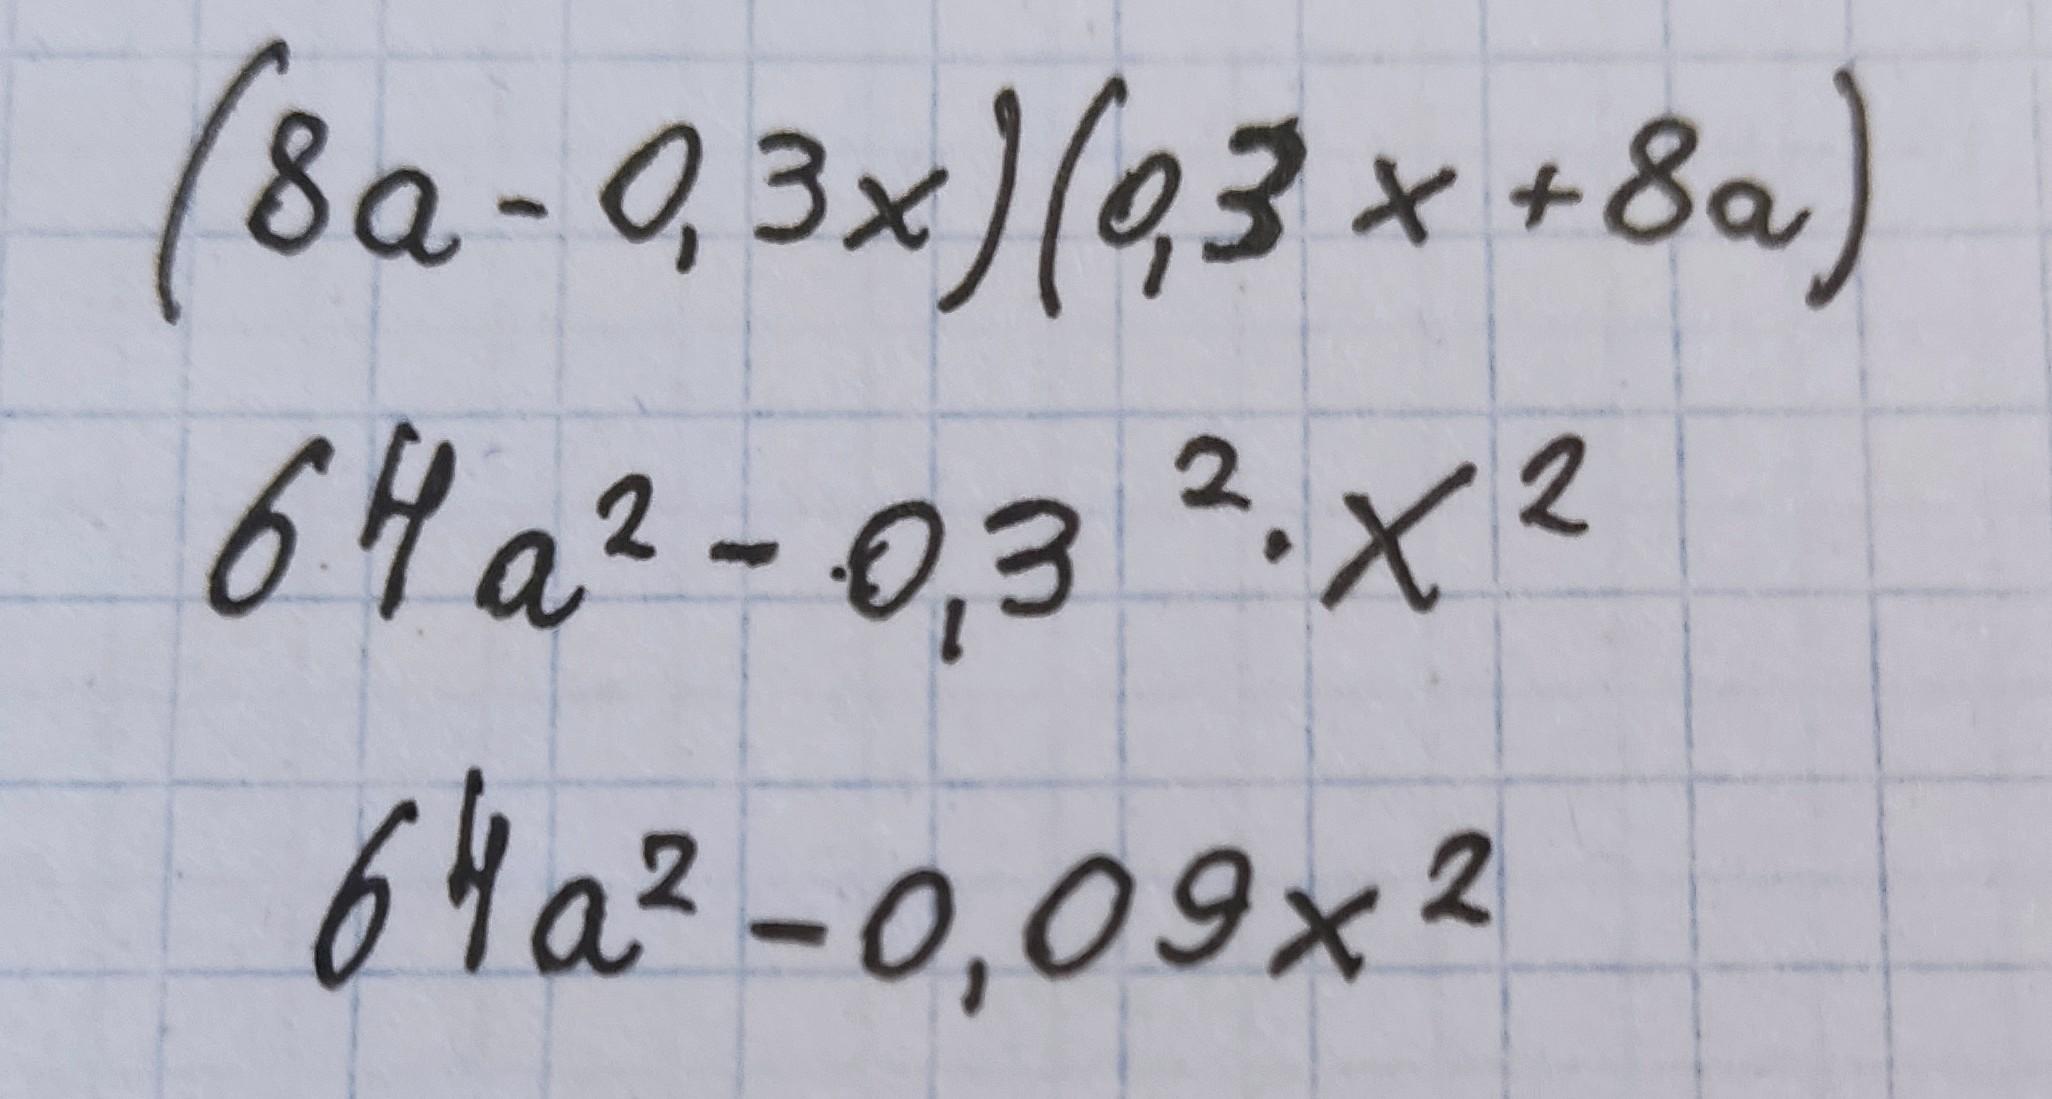 (8a - 0,3x)(0,3x + 8a)
64a² - 0,3² · x²
64a² - 0,09x²